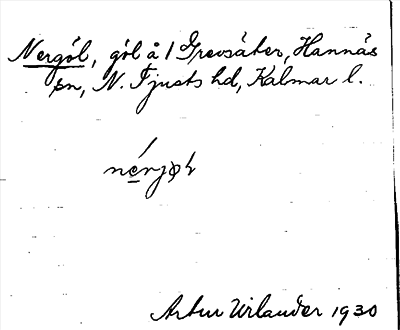 Nergöl, göl å 1 Grevsäter, Hannäs
sn, N. Tjusts hd, Kalmar l.
Artur Wirlander 1930